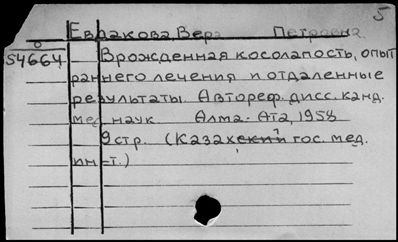 5
Евдакова, Вера Петровна.
S4664 Врожденная косолапость, опыт
раннего лечения и отдаленные
результаты. Автореф. дисс. канд.
мед наук Алма-Ата, 1958
9 стр. (Казахский гос. мед.
ин-т.)